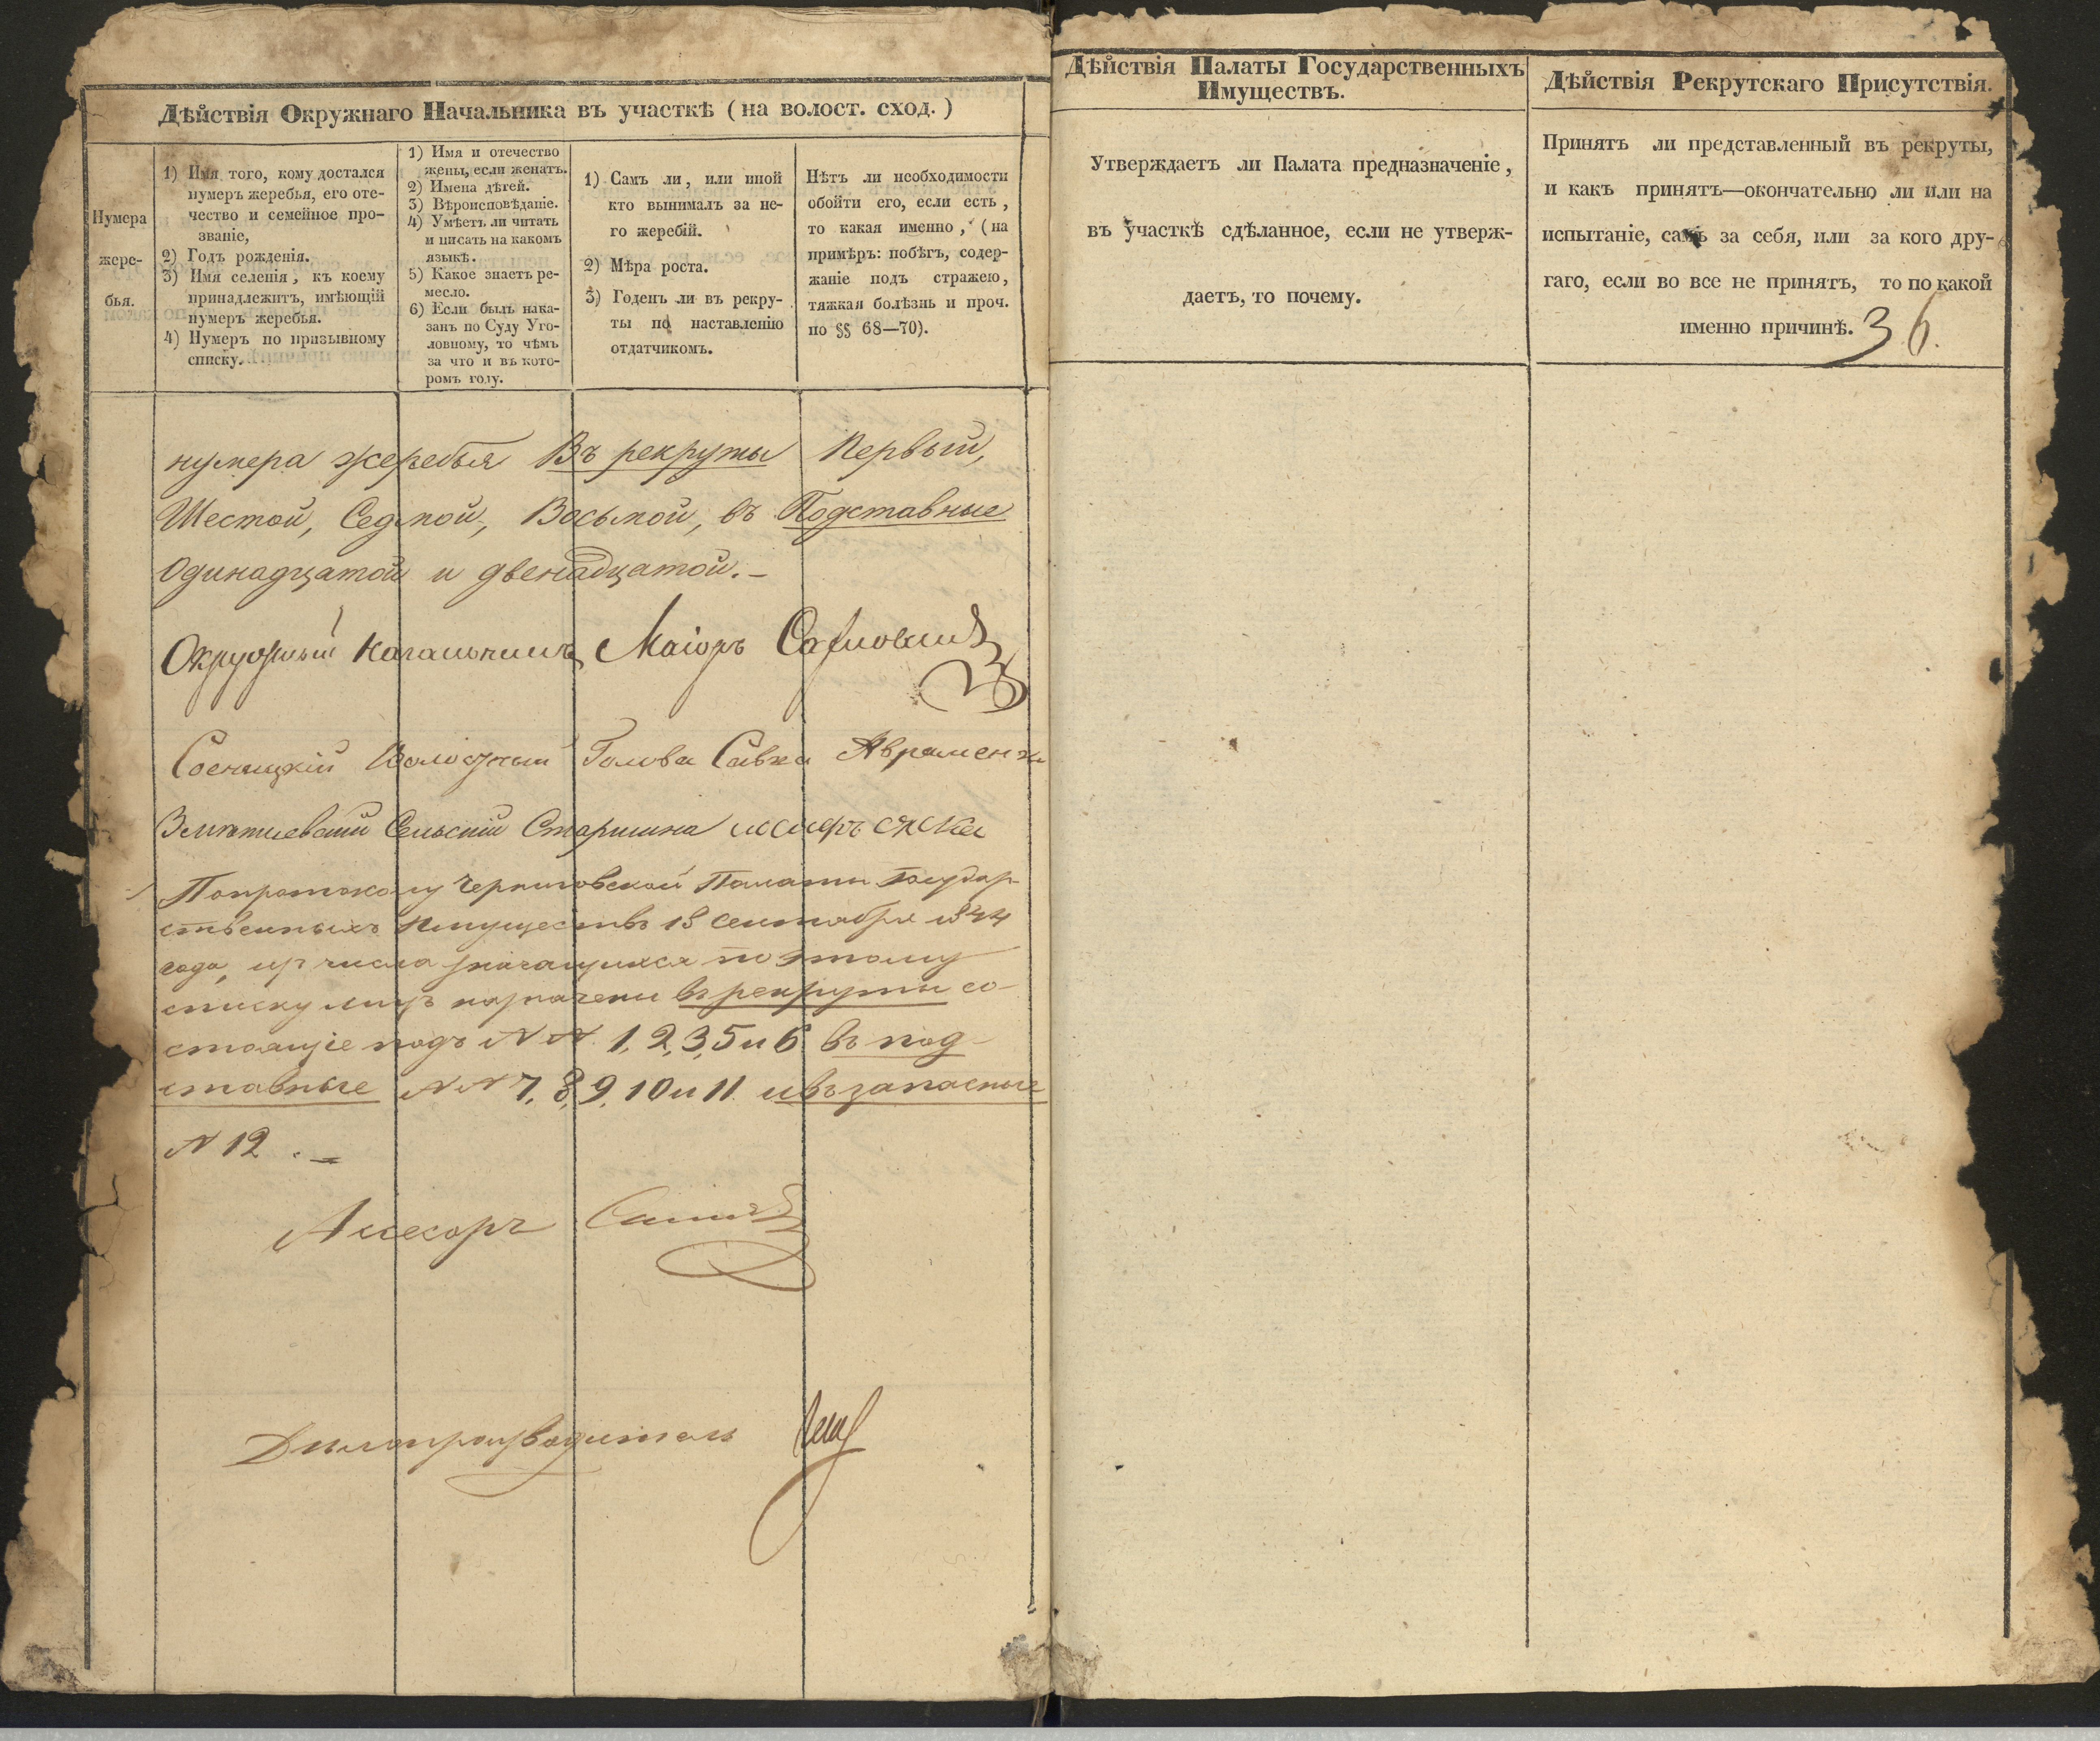 Дѣйствія Окружнаго Начальника въ участкѣ (на волост. сход.)
Нумера
жере-
бья.
1) Имя того, кому достался
нумеръ жеребья, его оте-
чество и семейное про-
званіе,
2) Годъ рожденія.
3) Имя селенія, къ коему
принадлежитъ, имѣющій
нумеръ жеребья.
4) Нумеръ по призывному
списку.
1) Имя и отечество
жены, если женатъ.
2) Имена дѣтей.
3) Вѣроисповѣданіе.
4) Умѣетъ ли читать
и писать на какомъ
языкѣ.
5) Какое знаетъ ре-
месло.
6) Если былъ нака-
занъ по Суду Уго-
ловному, то чѣмъ
за что и въ кото-
ромъ году.
1) Самъ ли, или иной
кто вынималъ за не-
го жеребій.
2) Мѣра роста.
3) Годенъ ли въ рекру-
ты по наставленію
отдатчикомъ.
Нѣтъ ли необходимости
обойти его, если есть,
то какая именно, (на
примѣръ: побѣгъ, содер-
жаніе подъ стражею,
тяжкая болѣзнь и проч.
по §§ 68—70).
нумера жеребья Въ рекруты Первый,
Шестой, Седмой, Восьмой, въ Подставные
Одинадцатой и двенадцатой.–
Окружный Начальникъ Маіоръ
Сосницкій Волостный Голова Савка Авраменко
Сельскій Старшина
По протоколу Черниговской Палаты Государ-
ственныхъ Имуществъ 18 сентября 1844
года, изъ числа значащихся по этому
списку лицъ назначены въ рекруты со-
стоящіе подъ NN. 1, 2, 3, 5 и 6 въ под-
ставные NN 7, 8, 9, 10 и 11 и въ запасные
N 12 . –
Ассесоръ
Дѣлопроизводитель
Дѣйствія Палаты Государственныхъ
Имуществъ.
Утверждаетъ ли Палата предназначеніе,
въ участкѣ сдѣланное, если не утверж-
даетъ, то почему.
Дѣйствія Рекрутскаго Присутствія.
Принятъ ли представленный въ рекруты,
и какъ принятъ—окончательно ли или на
испытаніе, самъ за себя, или за кого дру-
гаго, если во все не принятъ, то по какой
именно причинѣ.
36.